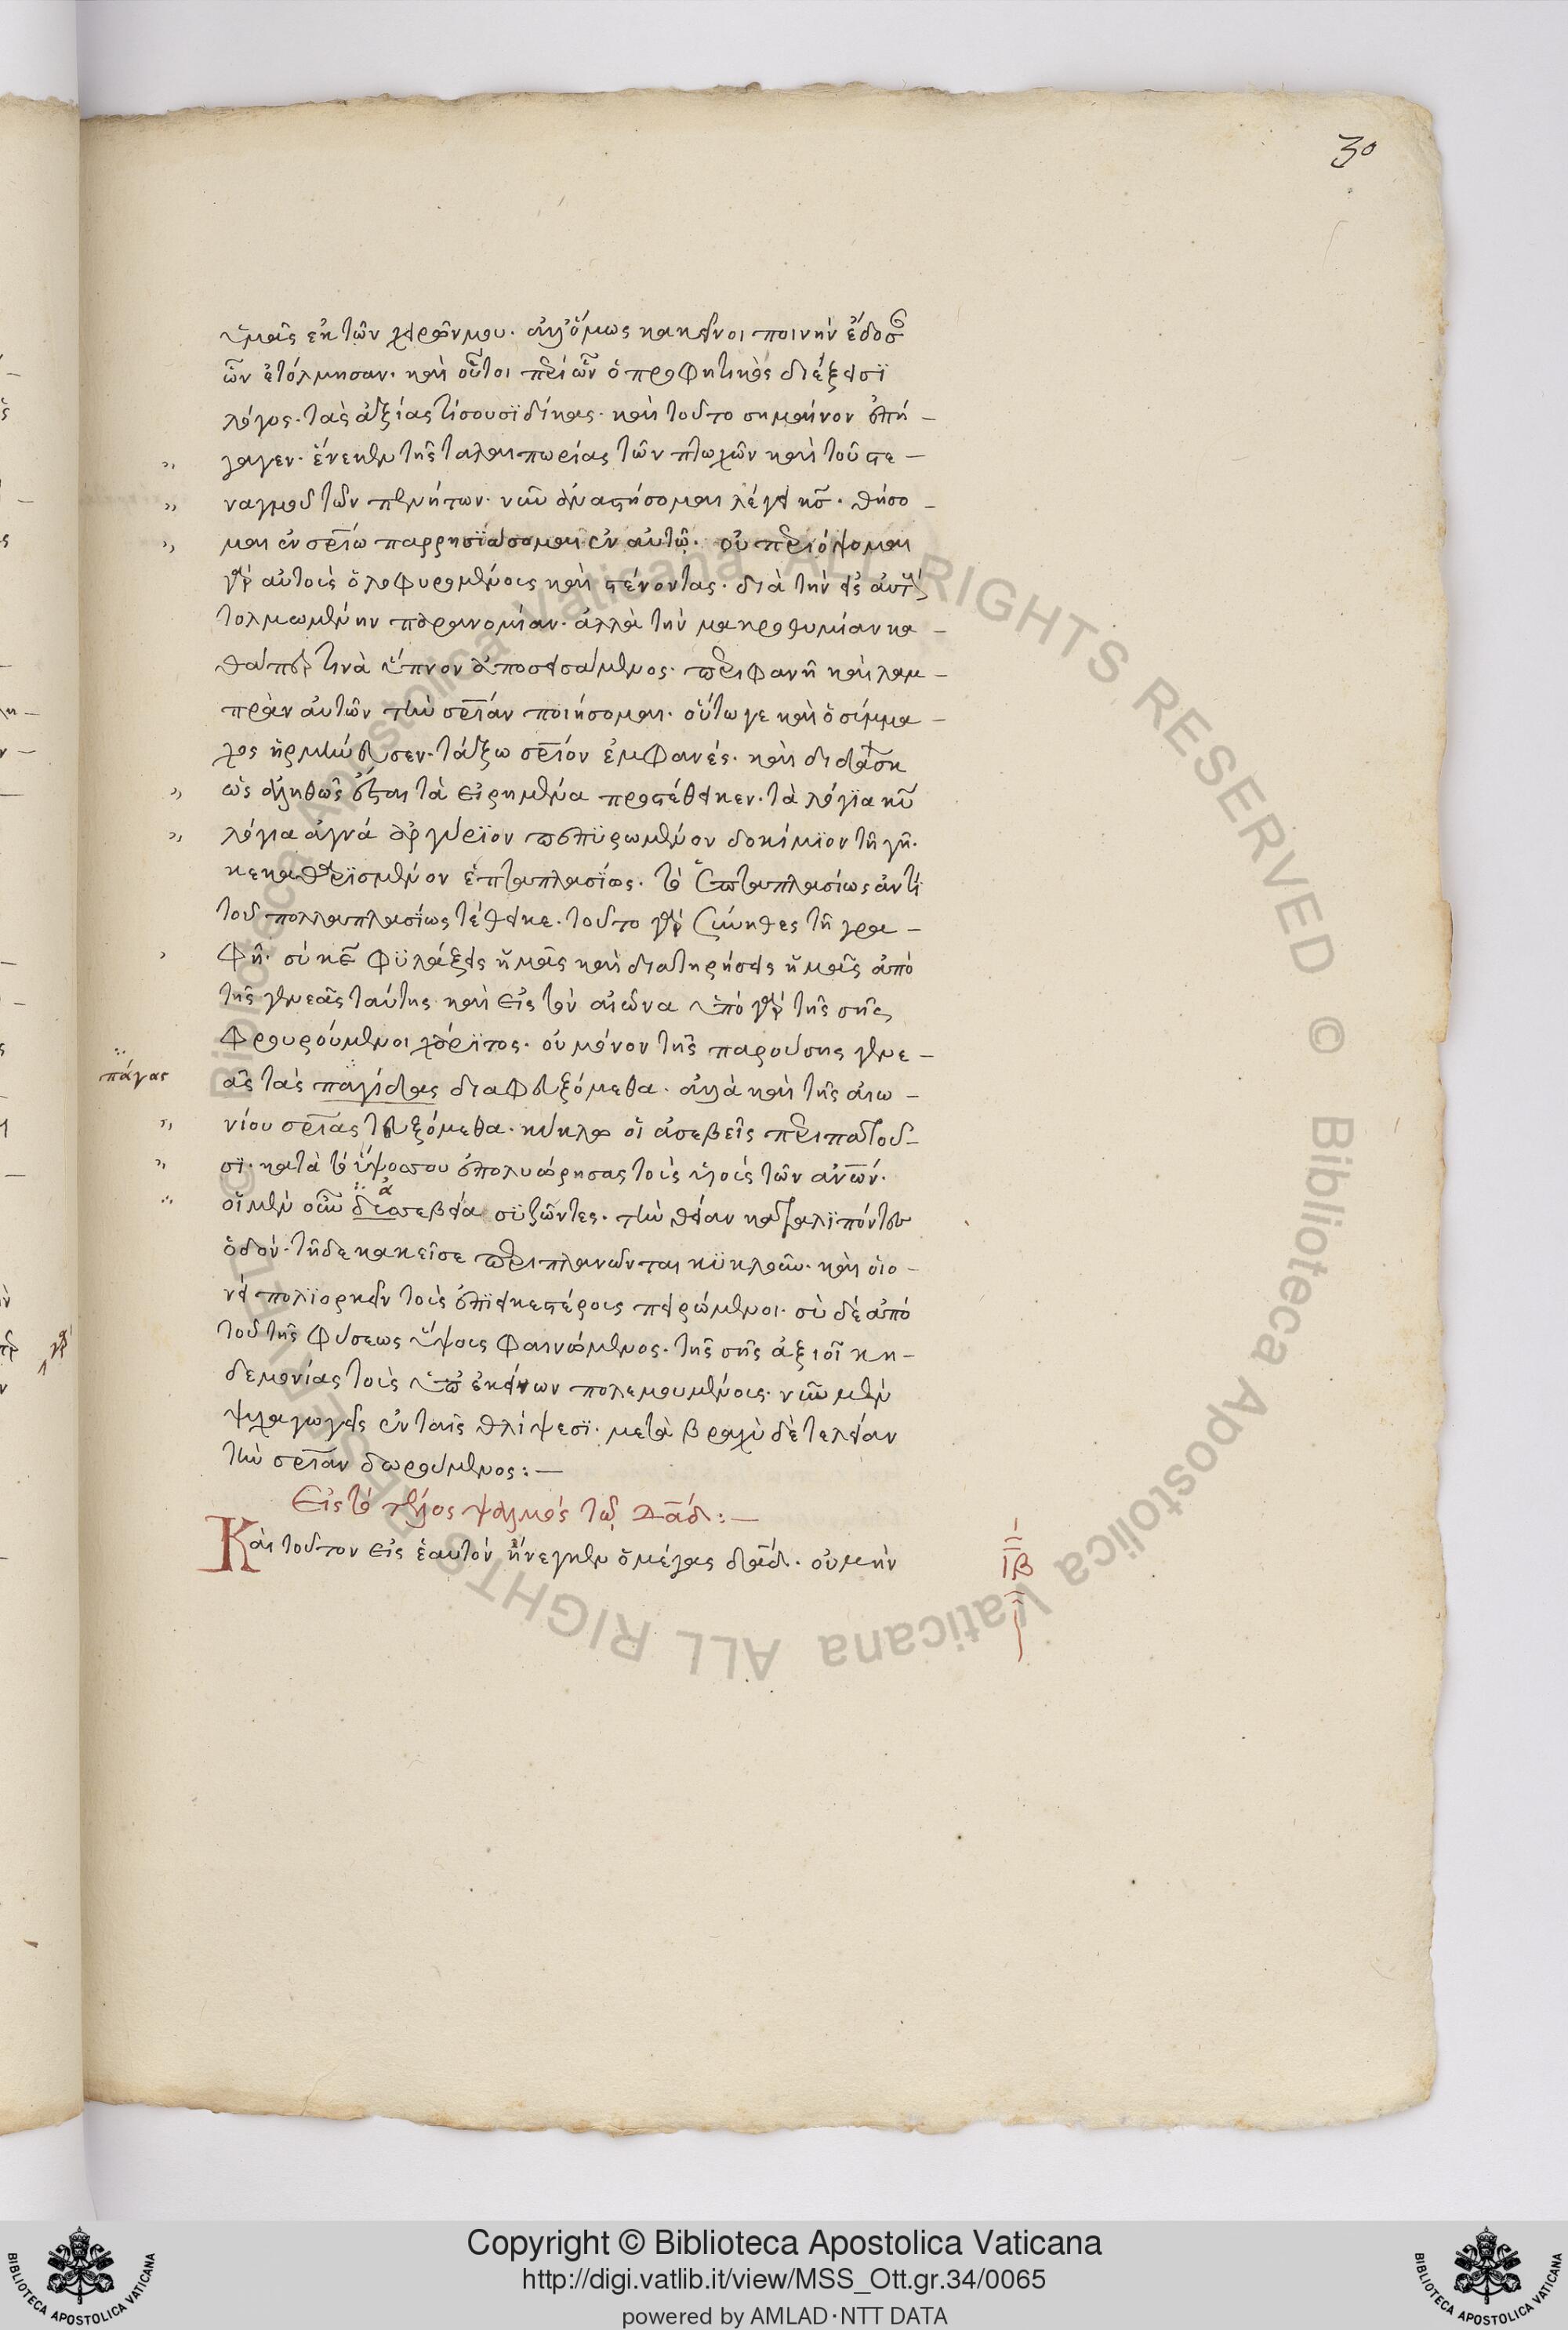 30
ὑμᾶς ἐκ τῶν χειρῶν μου. ἀλλ' ὅμως κακεῖνοι ποινὴν ἔδοσαν
ὧν ἐτόλμησαν. καὶ οὗτοι περὶ ὧν ὁ προφητικὸς διέξεισϊ
λόγος. τὰς ἀξίας τίσουσϊ δίκας. καὶ τοῦτο σημαίνον ἐπή –
γαγεν. ἕνεκεν τῆς ταλαιπωρίας τῶν πτωχῶν καὶ τοῦ στε –
ναγμοῦ τῶν πενήτων. νῦν ἀναστήσομαι λέγει κ̅ς̅. θήσο –
μαι ἐν σ̅ρ̅ίω παρρησϊάσομαι ἐν αὐτῷ. οὐ περιόψομαι
γὰρ αὐτοὺς ὀλοφυρομένους καὶ στένοντας. διὰ τὴν εἰς αὐτοὺς
τολμωμένην παρανομίαν. ἀλλὰ τὴν μακροθυμίαν κα –
θάπερ τινὰ ὕπνον ἀποσεισάμενος. περιφανῆ καὶ λαμ –
πρὰν αὐτῶν τὴν σ̅ρ̅ίαν ποιήσομαι. οὕτω γε καὶ ὁ σύμμα –
χος ἡρμήνευσεν. τάξω σ̅ρ̅ίον ἐμφανές. καὶ διδάσκ
ὡς ἀληθῶς ἔσται τὰ εἰρημένα προστέθεικεν. τὰ λόγϊα κ̅υ̅
λόγια ἁγνά ἀργύρϊον πεπϋρωμένον δοκίμϊον τῇ γῇ.
κεκαθαρϊσμένον ἑπταπλασϊως. τὸ ἑπταπλασίως ἀντὶ
τοῦ πολλαπλασίως τέθεικε. τοῦτο γὰρ σύνηθες τῇ γρα –
φῇ. σὺ κ̅ε̅ φϋλάξεις ἡμᾶς καὶ διατηρήσεις ἡμᾶς ἀπὸ
τῆς γενεᾶς ταύτης καὶ εἰς τὸν αἰῶνα ὑπὸ γὰρ τῆς σῆς
φρουρούμενοι χάρϊτος. οὐ μόνον τῆς παρούσης γενε –
πάγας
ᾶς τὰς παγίδας διαφευξόμεθα. ἀλλὰ καὶ τῆς αἰω –
νίου σ̅ρ̅ίας τευξόμεθα. κύκλω οἱ ἀσεβεῖς περιπατοῦ –
σϊ. κατὰ τὸ ὕψος σου ἐπολυώρησας τοὺς υἱοὺς τῶν ἀ̅ν̅ω̅ν̅.
οἱ μὲν οὖν δϊασεβεία σϋζῶντες. τὴν θείαν καταλϊπόντες
ὁδόν. τῇδε κακεῖσε περιπλανῶνται κϋκλοῦν. καὶ οἱο –
νεὶ πολϊορκεῖν τοὺς ἐπϊεικεστέρους πειρώμενοι. σὺ δὲ ἀπὸ
τοῦ τῆς φύσεως ὕψους φαινόμενος. τῆς σῆς ἀξιοῖ κη –
δεμονίας τοὺς ὑπ' ἐκείνων πολεμουμένους. νῦν μὲν
ψυχαγωγεῖς ἐν ταῖς θλίψεσϊ. μετὰ βραχὺ δὲ τελείαν
τὴν σ̅ρ̅ίαν δωρούμενος: –
Εἰς τὸ τέλος ψαλμὸς τῷ Δ̅ᾱ̅δ̅: –
Καὶ τοῦτον εἰς ἑαυτὸν ἤνεγκεν ὁ μέγας δ̅ᾱ̅δ̅. οὐ μὴν
ΙΒ
Copyright © Biblioteca Apostolica Vaticana
http://digi.vatlib.it/view/MSS_Ott.gr.34/0065
powered by AMLAD·NTT DATA